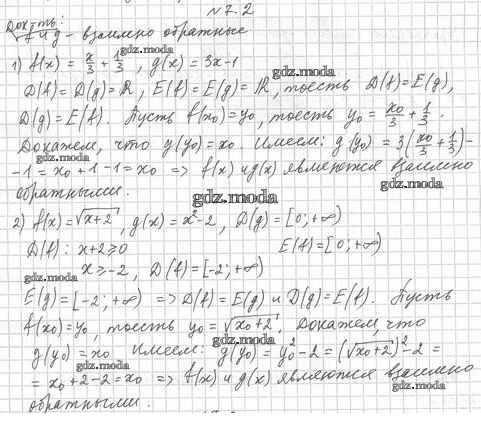 №7.2
Док-ть:
f и g - взаимно обратные
1) f(x) = x/3 + 1/3 , g(x) = 3x-1
D(f) = D(g) = R, E(f) = E(g) = R, тоесть D(f) = E(g),
D(g) = E(f). Пусть f(x₀) = y₀, тоесть y₀ = x₀/3 + 1/3 .
Докажем, что g(y₀) = x₀. Имеем: g(y₀) = 3(x₀/3 + 1/3) -
- 1 = x₀ + 1 - 1 = x₀ => f(x) и g(x) являются взаимно
обратными.
2) f(x) = √(x+2) , g(x) = x²-2 , D(g) = [0; +∞)
D(f) : x+2 ≥ 0 E(f) = [0; +∞)
x ≥ -2 , D(f) = [-2; +∞)
E(g) = [-2; +∞) => D(f) = E(g) и D(g) = E(f). Пусть
f(x₀) = y₀, тоесть y₀ = √(x₀+2) . Докажем, что
g(y₀) = x₀ Имеем: g(y₀) = y₀² - 2 = (√(x₀+2))² - 2 =
= x₀ + 2 - 2 = x₀ => f(x) и g(x) являются взаимно
обратными.
gdz.moda
gdz.moda
gdz.moda
gdz.moda
gdz.moda
gdz.moda
gdz.moda
gdz.moda
gdz.moda